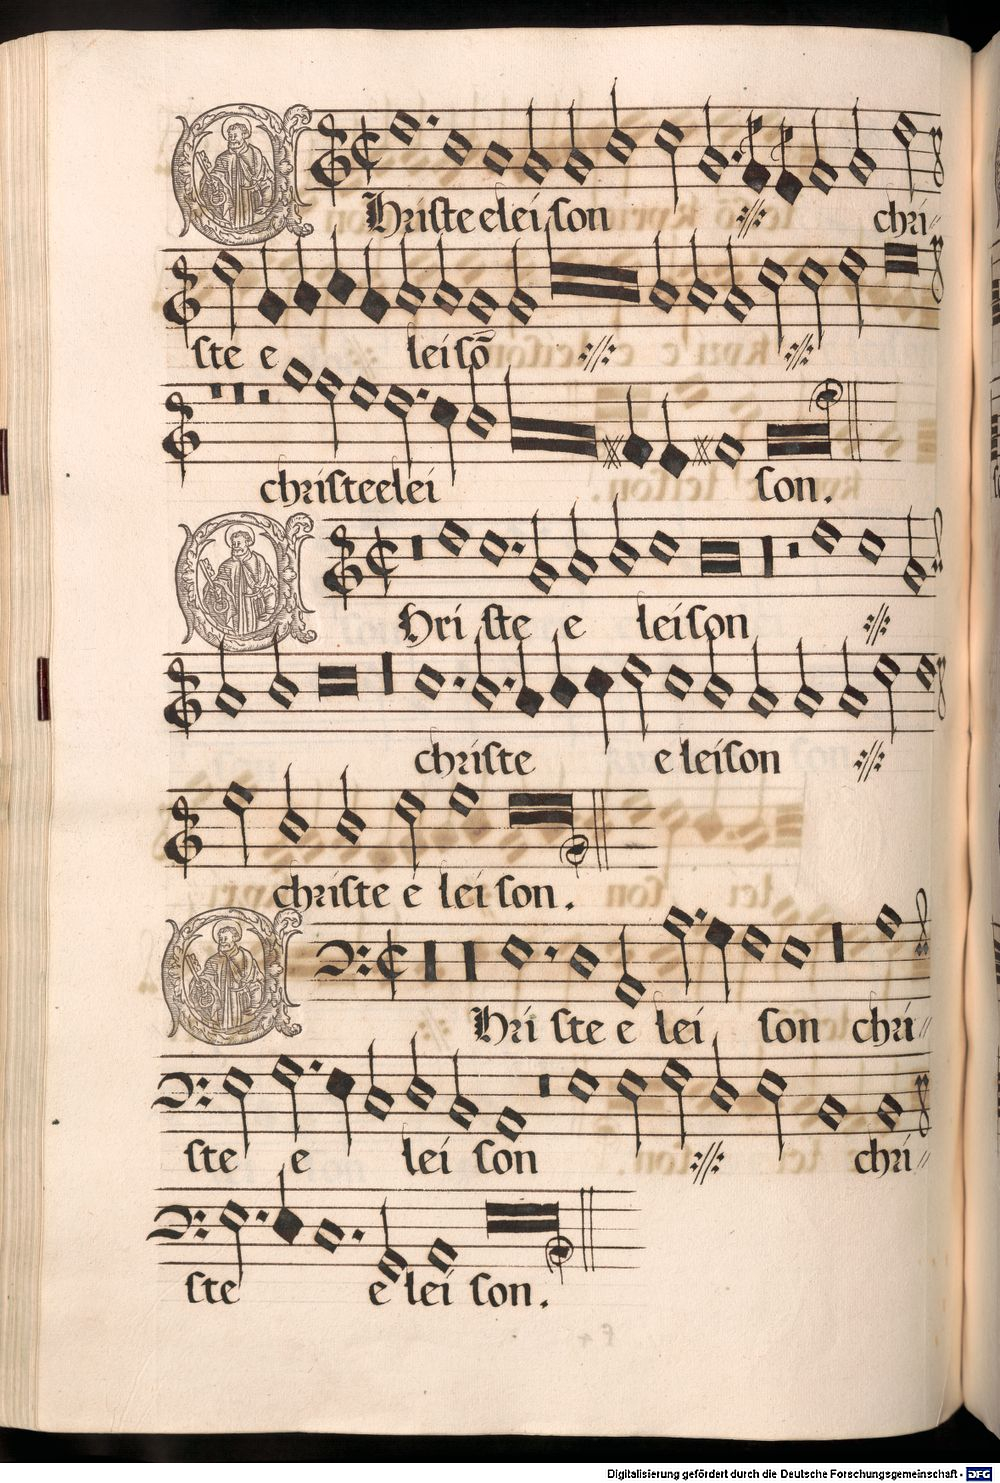 CHriste elei son chri
ste e lei sō
christe elei son.
CHri ste e lei son
christe e leison
christe e lei son.
CHri ste e lei son chri
ste e lei son chri
ste e lei son.
Digitalisierung gefördert durch die Deutsche Forschungsgemeinschaft - DFG